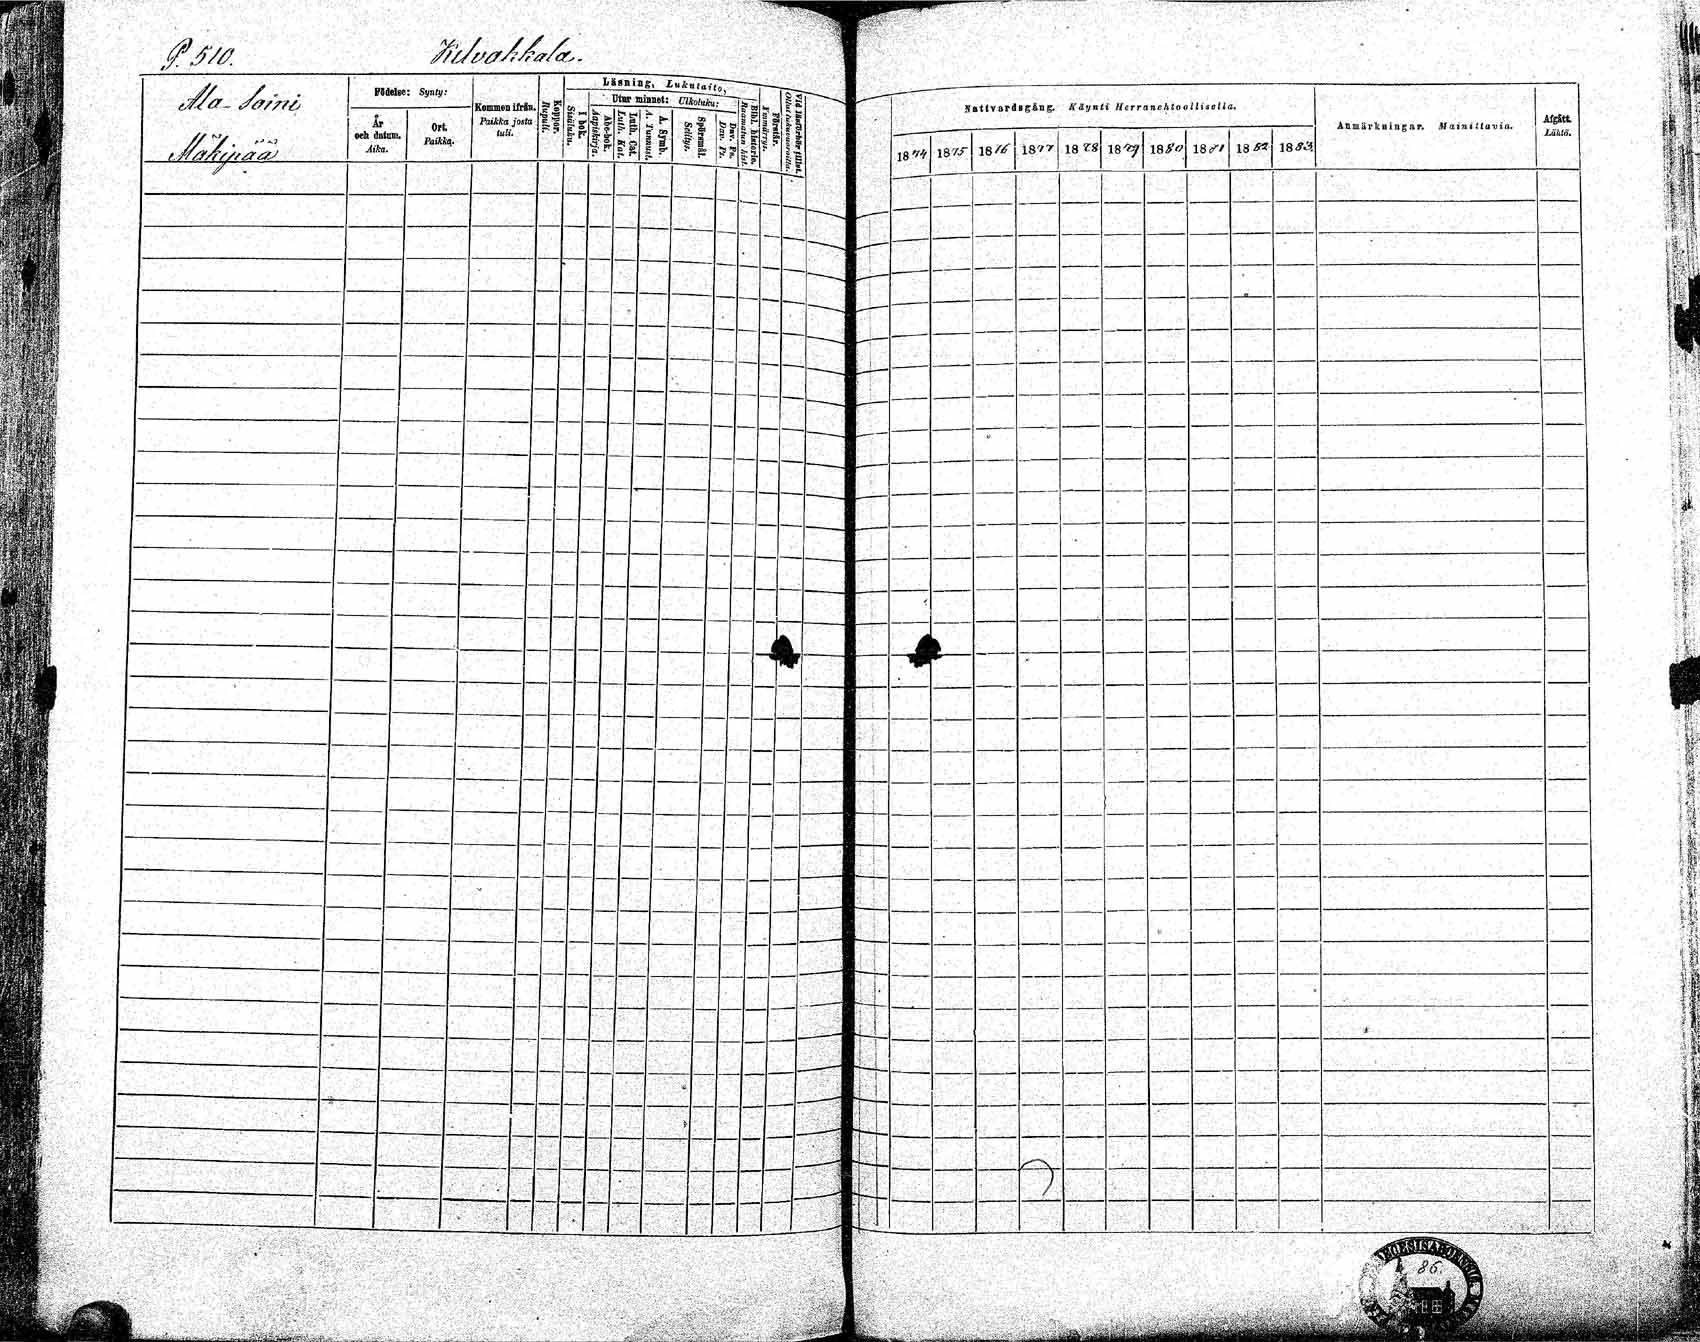 P. 510.
Kelvakkala.
Ala-Soini
Mäkipää
Födelse: Synty:
År och datum. Aika.
Ort. Paikka.
Kommen ifrån. Paikka josta tuli.
Koppor. Rupuli.
Läsning, Lukutaito,
I bok. Sisäluku.
Utur minnet: Ulkoluku:
Abc-bok. Aapiskirja.
Luth. Cat. Luth. Kat.
A. Symb. A. Tunnust.
Spörsmål. Selitys.
Dav. Ps. Dav. Ps.
Bibl. historia. Raamatun hist.
Förstår. Ymmärrys.
Vid läsförhör tillst. Ollut lukuvuoroilla.
Nattvardsgång. Käynti Herranehtoollisella.
1874 1875 1876 1877 1878 1879 1880 1881 1882 1883.
Anmärkningar. Mainittavia.
Afgått. Lähtö.
86.